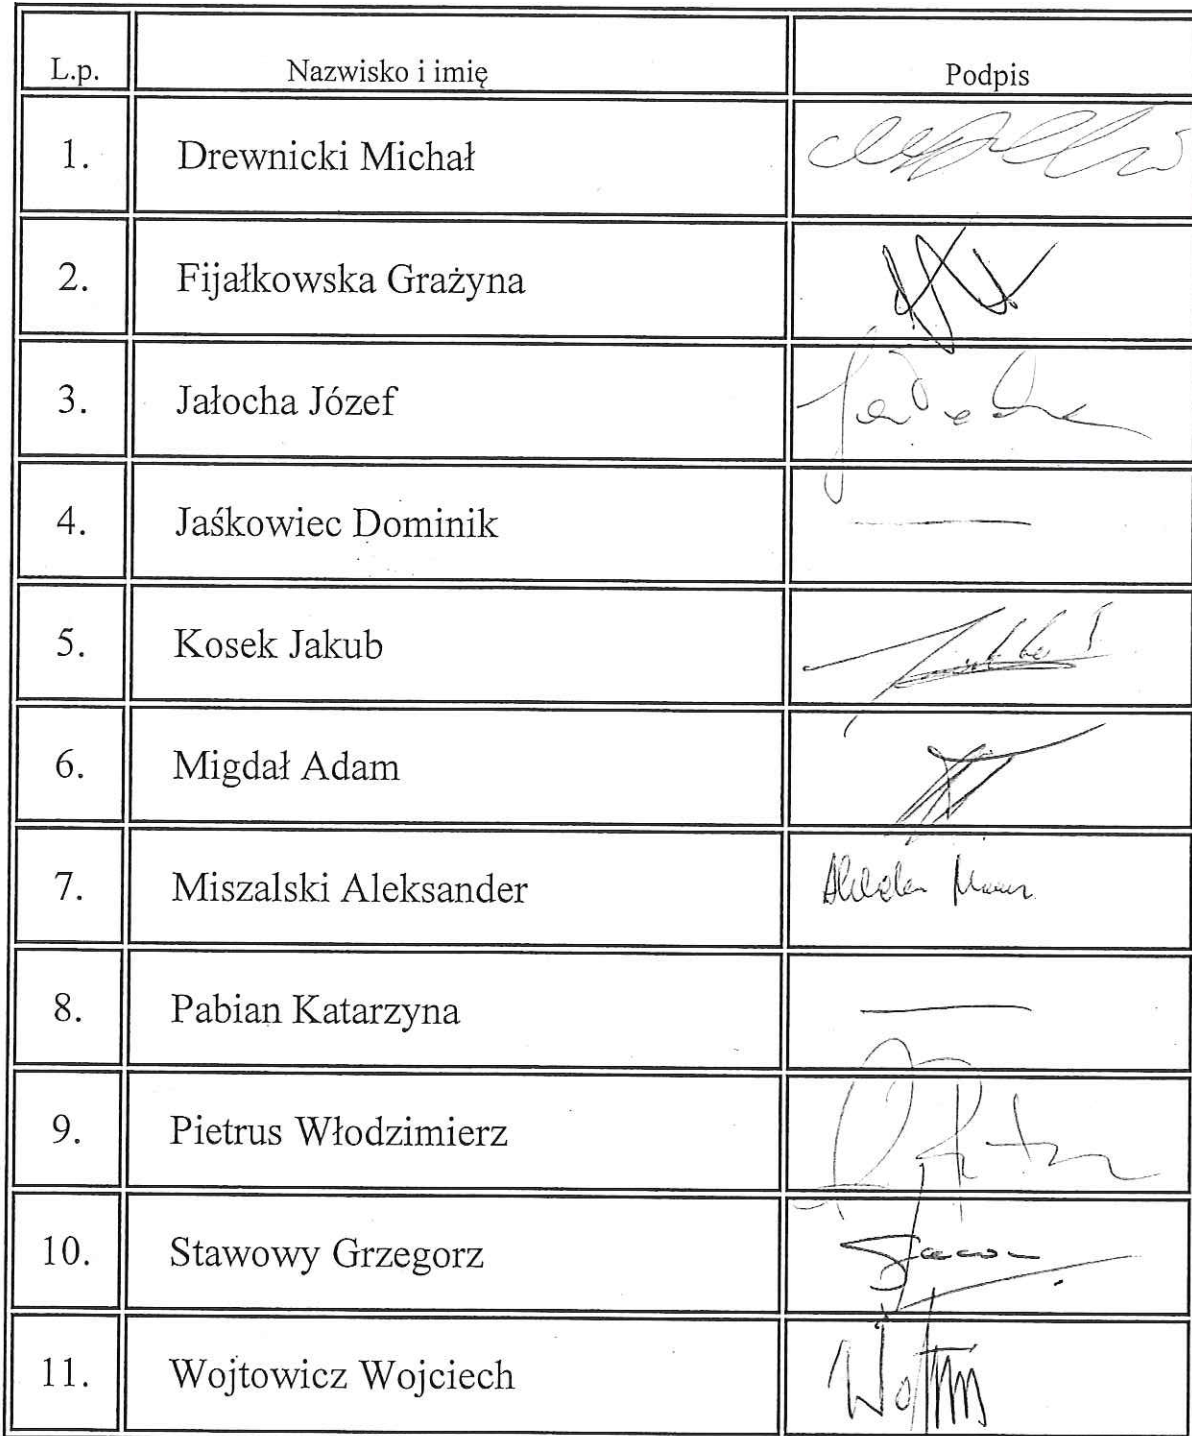 L.p. Nazwisko i imię Podpis
1. Drewnicki Michał
2. Fijałkowska Grażyna
3. Jałocha Józef
4. Jaśkowiec Dominik —
5. Kosek Jakub
6. Migdał Adam
7. Miszalski Aleksander
8. Pabian Katarzyna —
9. Pietrus Włodzimierz
10. Stawowy Grzegorz
11. Wojtowicz Wojciech